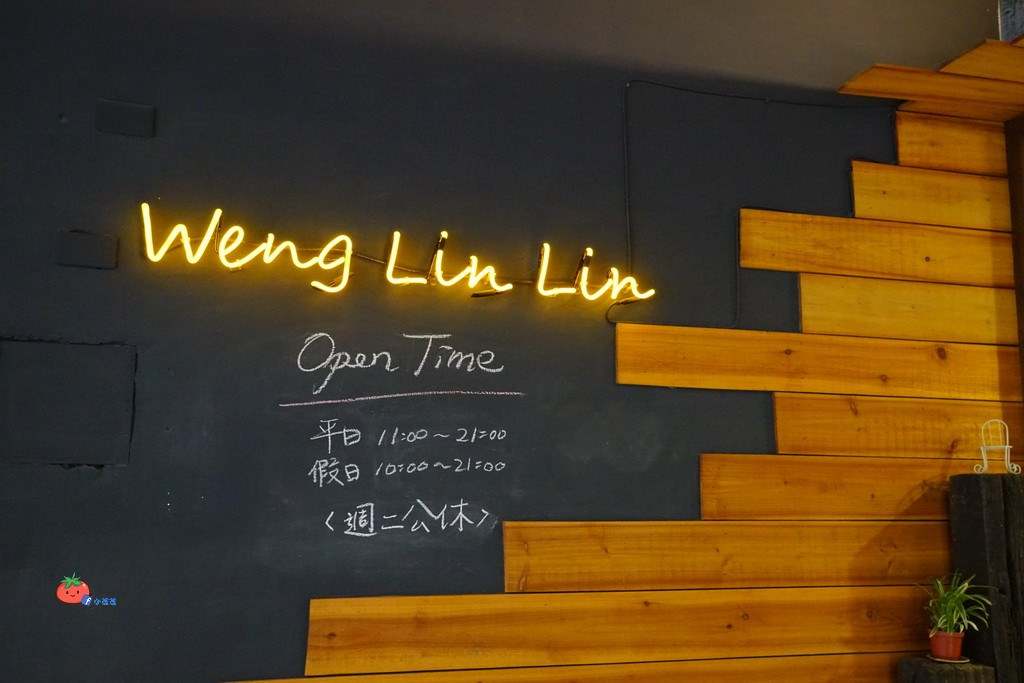 Weng Lin Lin
Open Time
平日 11:00~21:00
假日 10:00~21:00
<週二公休>